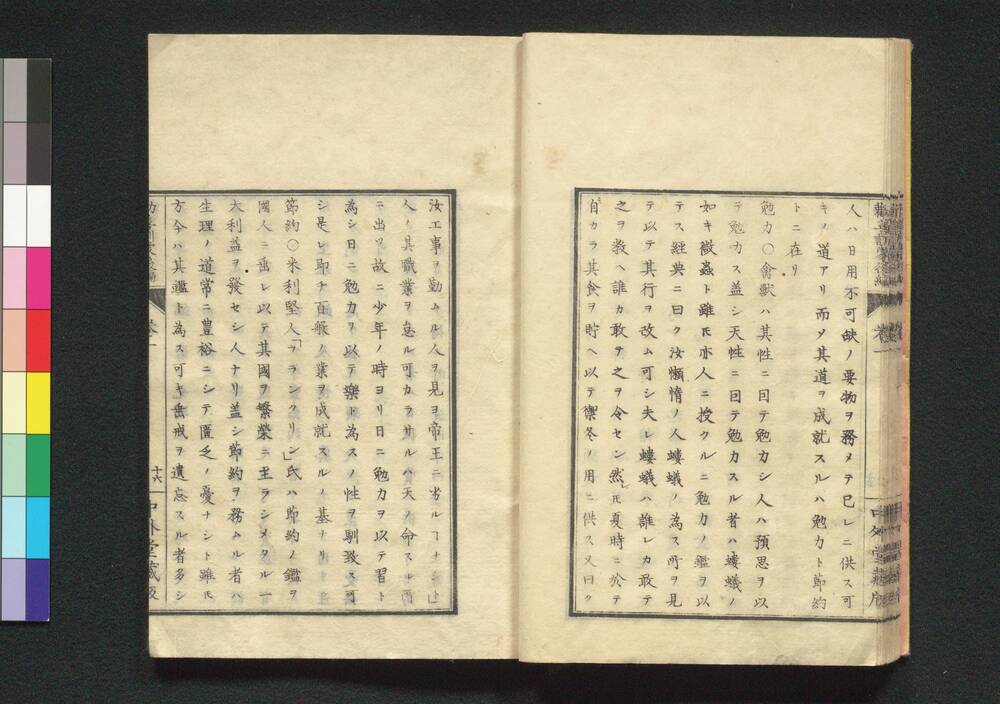 人ハ日用不可缺ノ要物ヲ務メテ已レニ供ス可
キノ道アリ而ソ其道ヲ成就スルハ勉力ト節約
トニ在リ
勉力〇禽獣ハ其性ニ因テ勉力シ人ハ預思ヲ以
テ勉力ス盖シ天性ニ因テ勉力スル者ハ螻蟻ノ
如キ微蟲ト雖𪜈亦人ニ授クルニ勉力ノ鑑ヲ以
テス經典ニ曰ク汝懶惰ノ人螻蟻ノ為ス所ヲ見
テ以テ其行ヲ改ム可シ夫レ螻蟻ハ誰レカ敢テ
之ヲ教ヘ誰カ敢テ之ヲ令セン然𪜈夏時ニ於テ
自カラ其食ヲ貯ヘ以テ禦冬ノ用ニ供ス又曰ク
汝工事ヲ勤ムル人ヲ見ヨ帝王ニ当ルヿナシト
人ノ其職業ヲ怠ル可カラサルハ天ノ命スル所
ニ出ツ故ニ少年ノ時ヨリ日ニ勉力ヲ以テ習ト
為シ日ニ勉力ヲ以テ樂ト為スノ性ヲ馴致ス可
シ是レ即チ百般ノ業ヲ成就スルノ基ナリト
節約〇米利堅人「フランクリン」氏ハ節約ノ鑑ヲ
國人ニ垂レ以テ其國ヲ繁榮ニ至ラシメタル一
大利益ヲ發セシ人ナリ盖シ節約ヲ務ムル者ハ
生理ノ道常ニ豊裕ニシテ匱乏ノ憂ナシト雖𪜈
方今ハ其鑑ト為ス可キ垂戒ヲ遺忘スル者多シ
十六
堂藏版